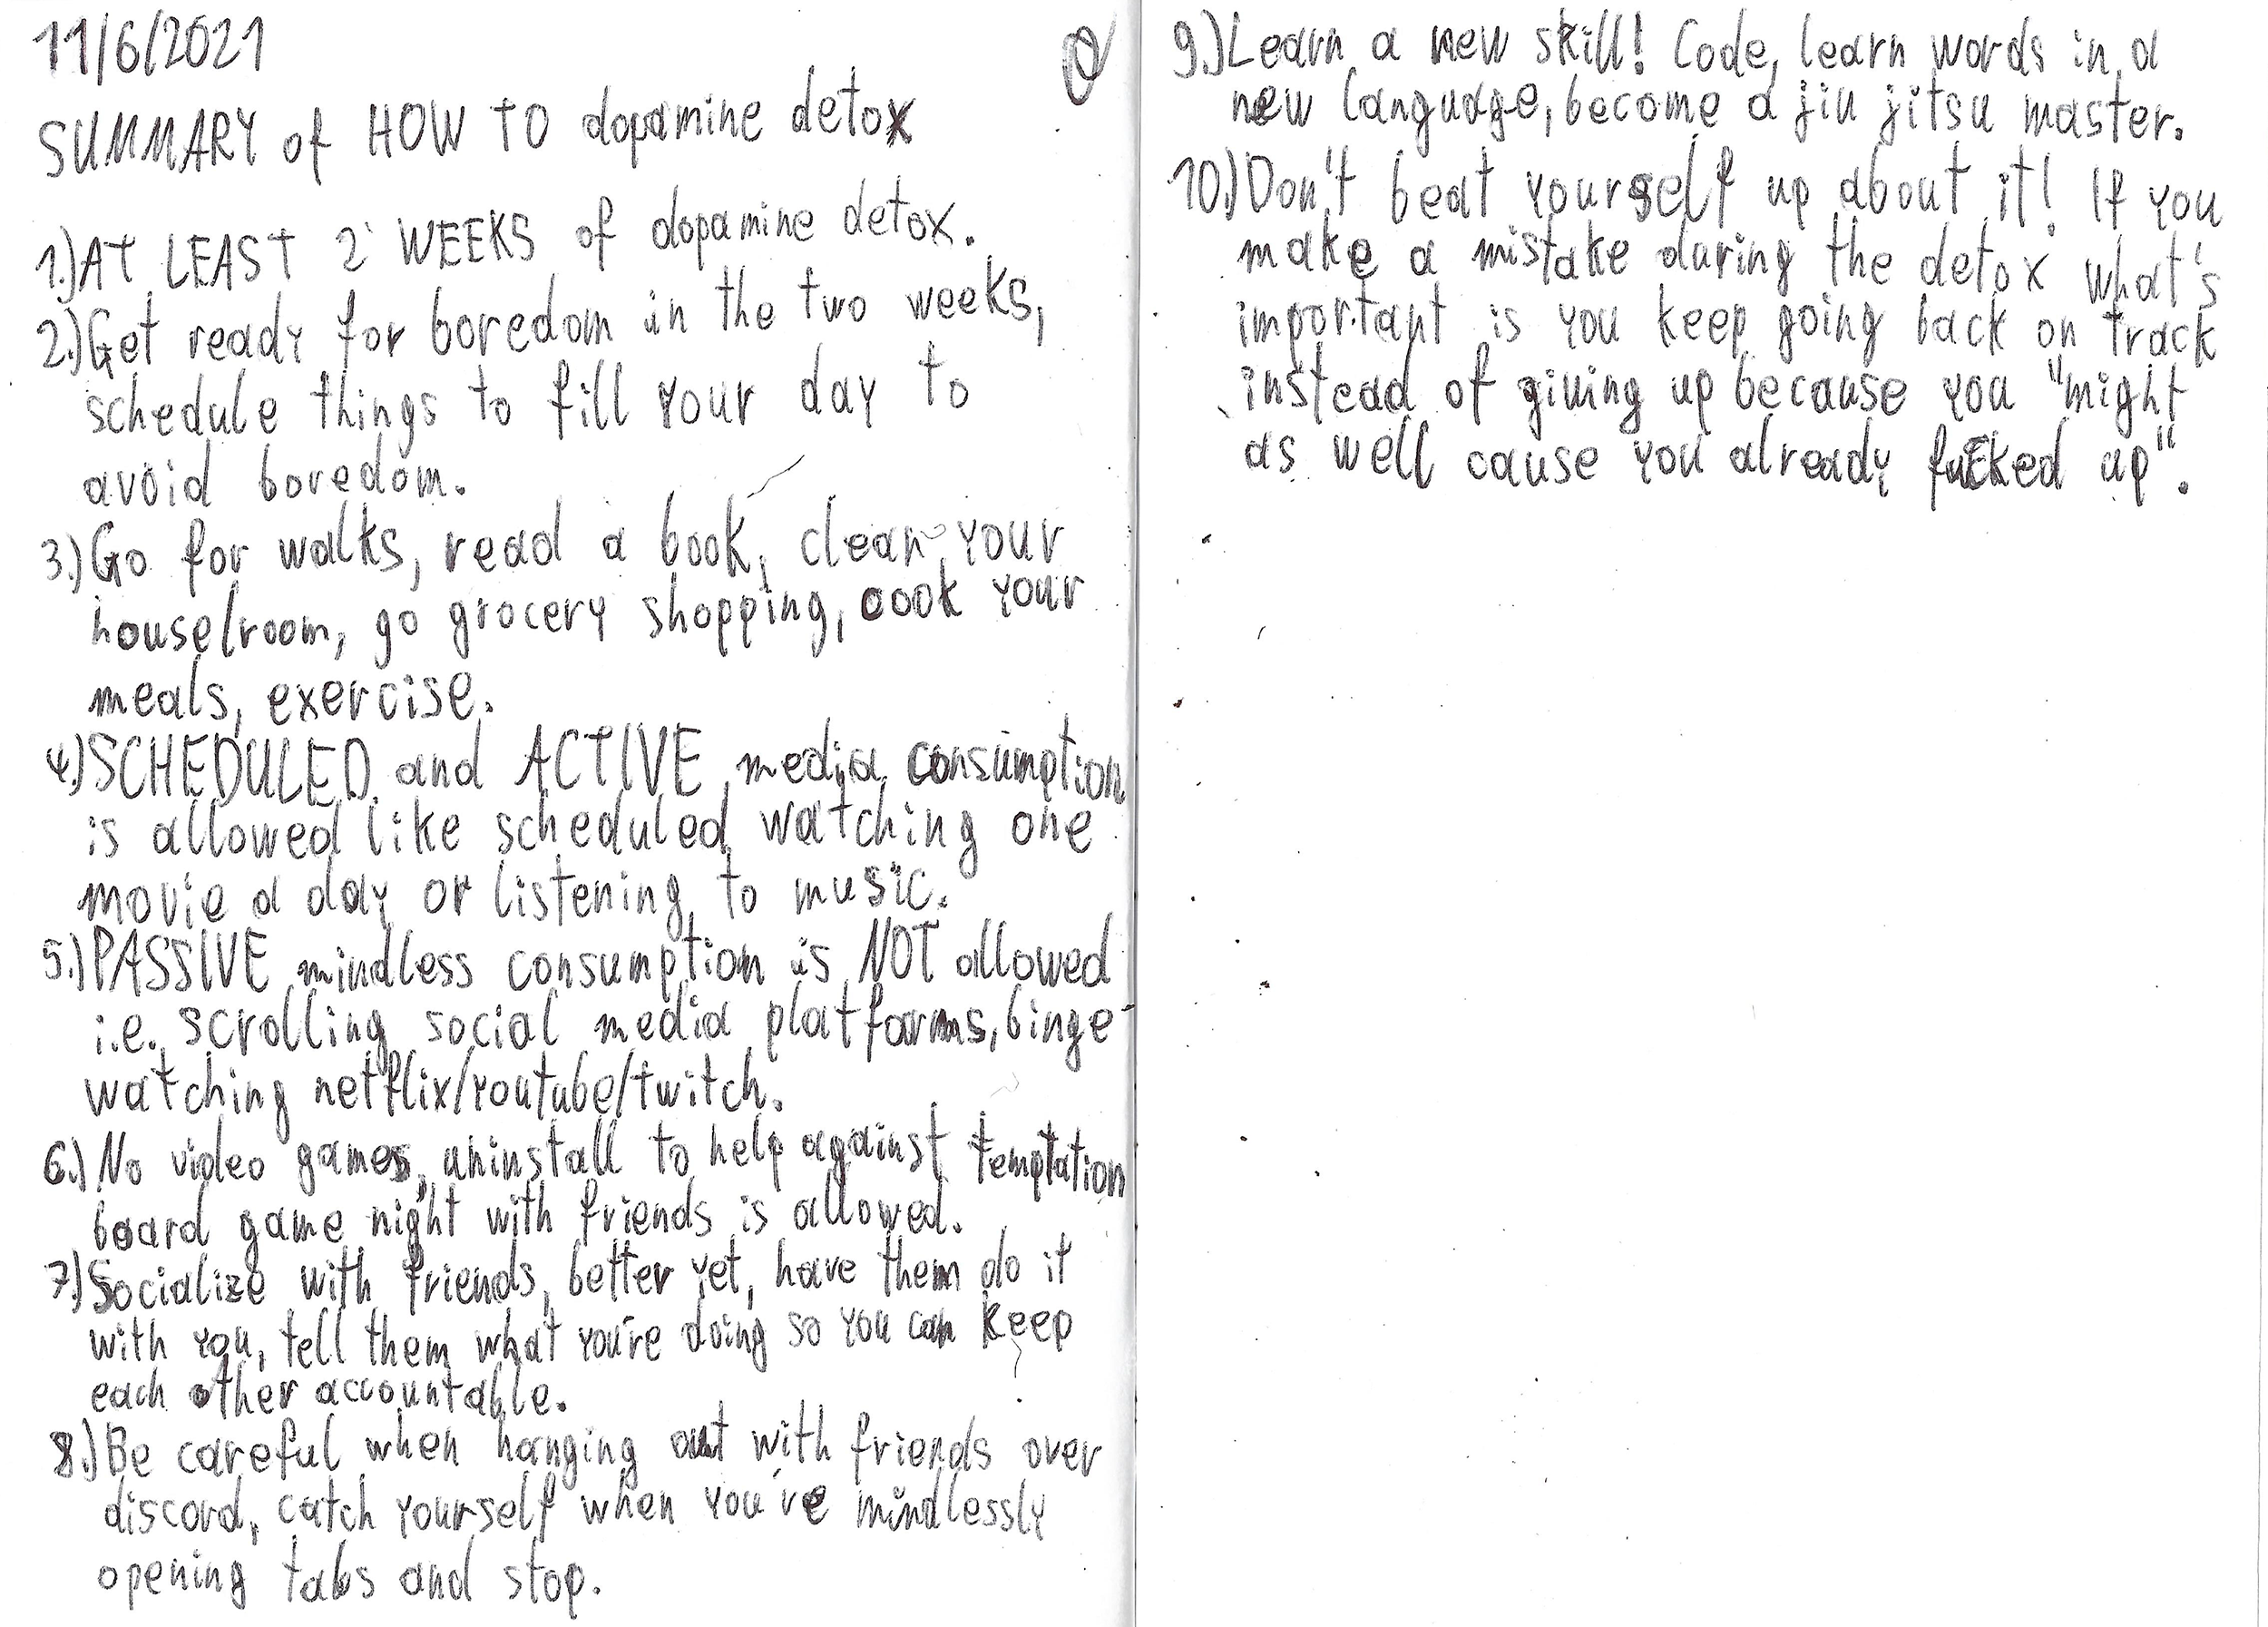 11/6/2021
SUMMARY of HOW TO dopamine detox
1.)AT LEAST 2 WEEKS of dopamine detox.
2.)Get ready for boredom in the two weeks,
schedule things to fill your day to
avoid boredom.
3.)Go for walks, read a book, clean your
house/room, go grocery shopping, cook your
meals, exercise.
4.)SCHEDULED and ACTIVE media consumption
is allowed like scheduled watching one
movie a day or listening to music.
5.)PASSIVE mindless consumption is NOT allowed
i.e. scrolling social media platforms, binge
watching netflix/youtube/twitch.
6.)No video games, uninstall to help against temptation
board game night with friends is allowed.
7.)Socialize with friends, better yet, have them do it
with you, tell them what you're doing so you can keep
each other accountable.
8.)Be careful when hanging out with friends over
discord, catch yourself when you're mindlessly
opening tabs and stop.
9.)Learn a new skill! Code, learn words in a
new language, become a jiu jitsu master.
10.)Don't beat yourself up about it! If you
make a mistake during the detox what's
important is you keep going back on track
instead of giving up because you "might
as well cause you already fucked up".